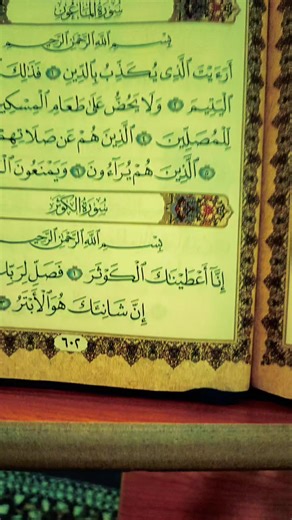 سُورَةُ الْمَاعُونِ
بِسْمِ اللَّهِ الرَّحْمَٰنِ الرَّحِيمِ
أَرَءَيْتَ الَّذِى يُكَذِّبُ بِالدِّينِ ١ فَذَٰلِكَ
الْيَتِيمَ ٢ وَلَا يَحُضُّ عَلَىٰ طَعَامِ الْمِسْكِي
لِّلْمُصَلِّينَ ٤ الَّذِينَ هُمْ عَن صَلَاتِهِمْ
٥ الَّذِينَ هُمْ يُرَآءُونَ ٦ وَيَمْنَعُونَ الْ
سُورَةُ الْكَوْثَرِ
بِسْمِ اللَّهِ الرَّحْمَٰنِ الرَّحِيمِ
إِنَّآ أَعْطَيْنَٰكَ الْكَوْثَرَ ١ فَصَلِّ لِرَبِّكَ
إِنَّ شَانِئَكَ هُوَ الْأَبْتَرُ ٣
٦٠٢